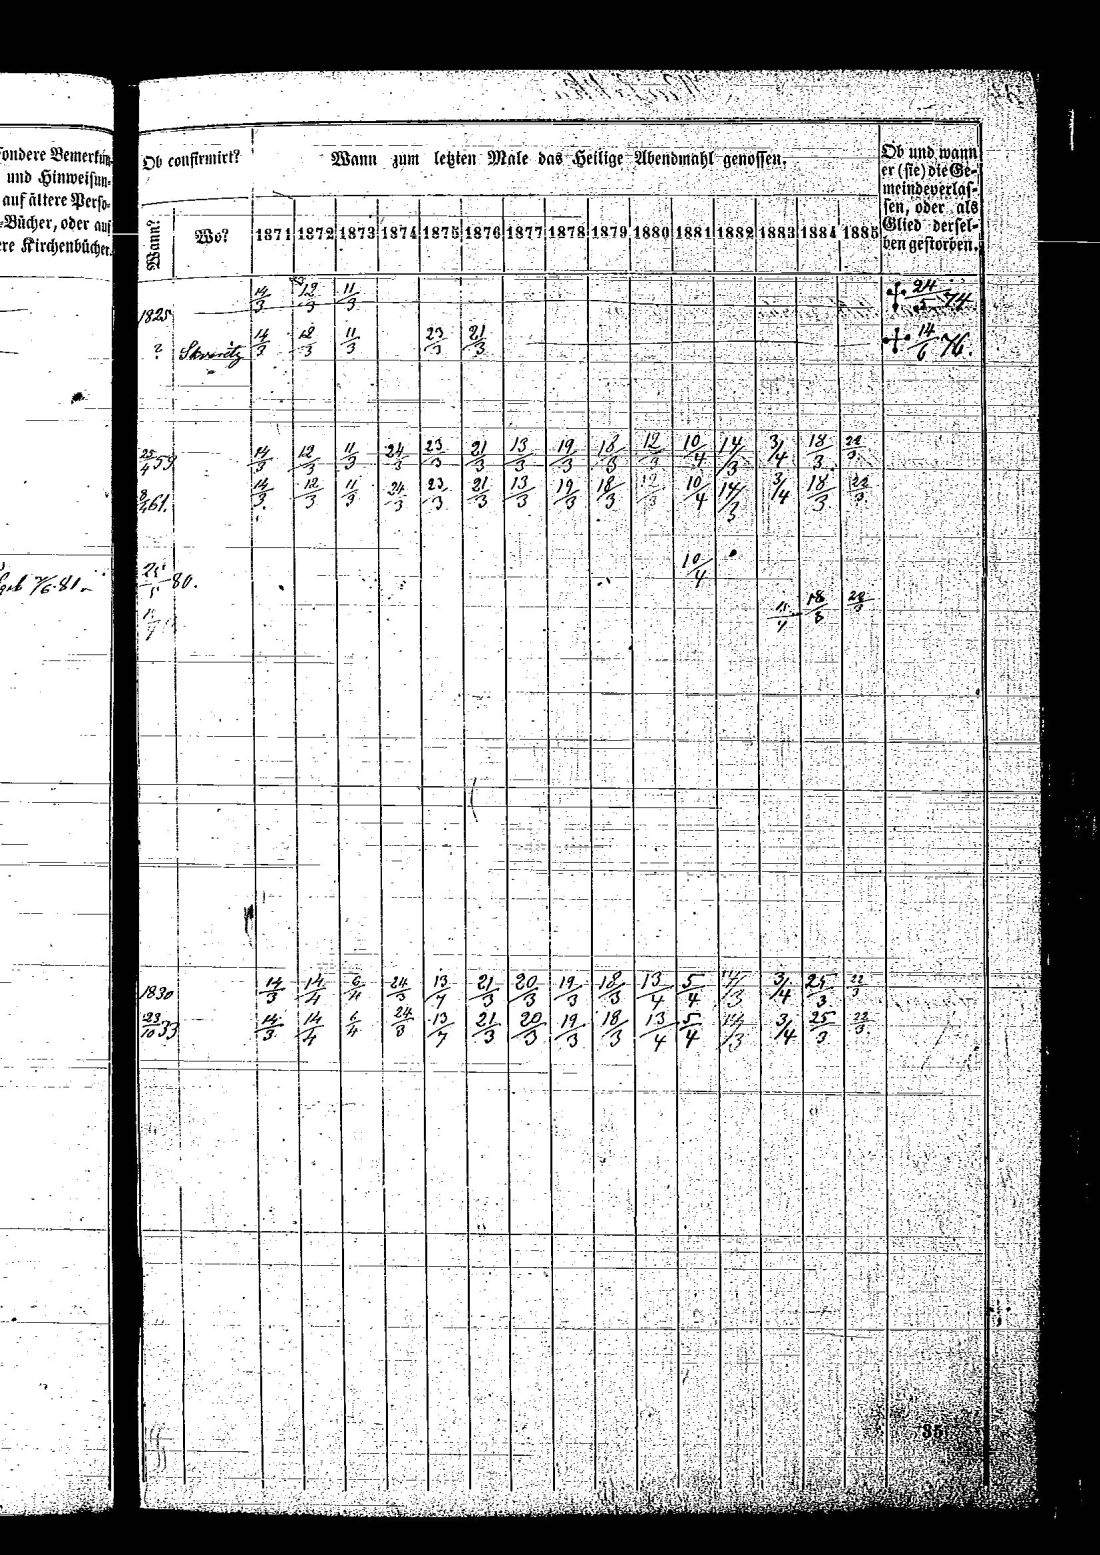 sondere Bemerkun-
und Hinweisun-
auf ältere Perso-
-Bücher, oder auf
ere Kirchenbücher.
Ob confirmirt?
Wann?
Wo?
Wann zum letzten Male das Heilige Abendmahl genossen.
1871 1872 1873 1874 1875 1876 1877 1878 1879 1880 1881 1882 1883 1884 1885
Ob und wann
er (sie) die Ge-
meinde verlas-
sen, oder als
Glied dersel-
ben gestorben.
14/3 12/3 11/3 24/5 74
1825
? 14/3 12/3 11/3 23/3 21/3 14/6 76.
25/4 59 14/3 12/3 11/3 24/3 23/3 21/3 13/3 19/3 18/3 12/3 10/4 14/3 3/4 18/3 22/3
61. 14/3 12/3 11/3 24/3 23/3 21/3 13/3 19/3 18/3 12/3 10/4 14/3 3/4 18/3 22/3
81 80. 10/4
18/3 22/3
1830 14/3 14/4 6/4 24/3 13/4 21/3 20/3 19/3 18/3 13/4 5/4 14/3 3/4 25/3 22/3
23/10 33 14/3 14/4 6/4 24/3 13/4 21/3 20/3 19/3 18/3 13/4 5/4 14/3 3/4 25/3 22/3
35